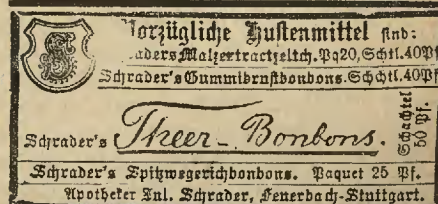 Vorzügliche Hustenmittel sind:
aders Malzextractzeltch. Pq20, Schtl. 40Pf
Schrader's Gummibrustbonbons. Schchtl. 40Pf
Schrader's Theer-Bonbons. Schachtel 50 Pf.
Schrader's Spitzwegerichbonbons. Paquet 25 Pf.
Apotheker Jul. Schrader, Feuerbach-Stuttgart.